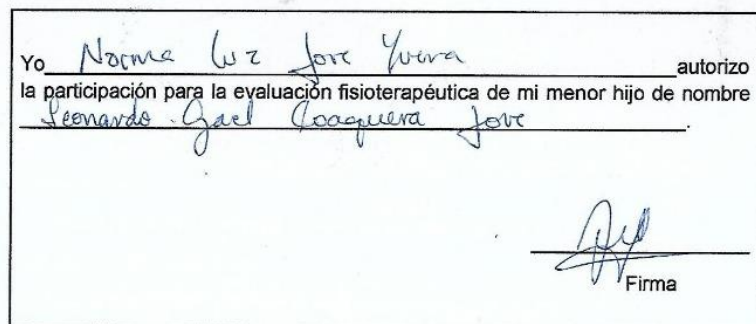 Yo Norma Luz Jove Yvera autorizo
la participación para la evaluación fisioterapéutica de mi menor hijo de nombre
Leonardo Gael Coaquera Jove.
Firma